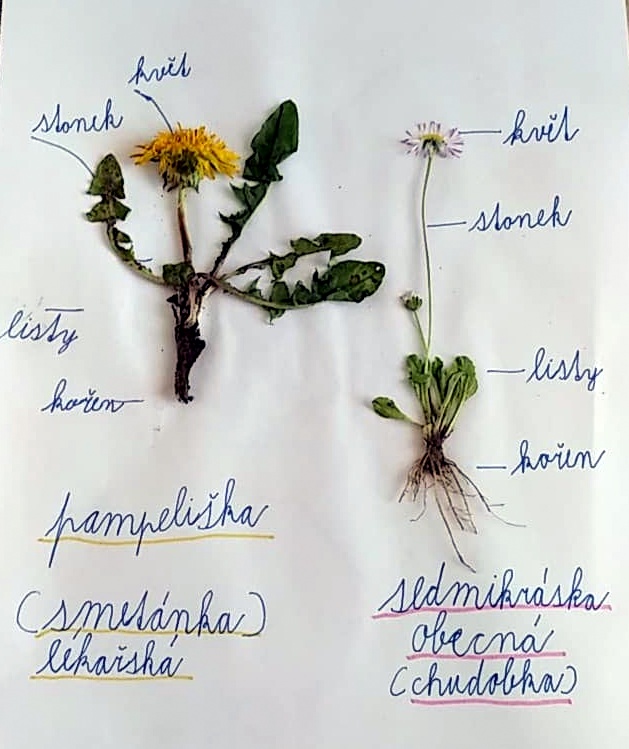 květ
stonek
listy
kořen
pampeliška
(smetánka)
lékařská
květ
stonek
listy
kořen
sedmikráska
obecná
(chudobka)